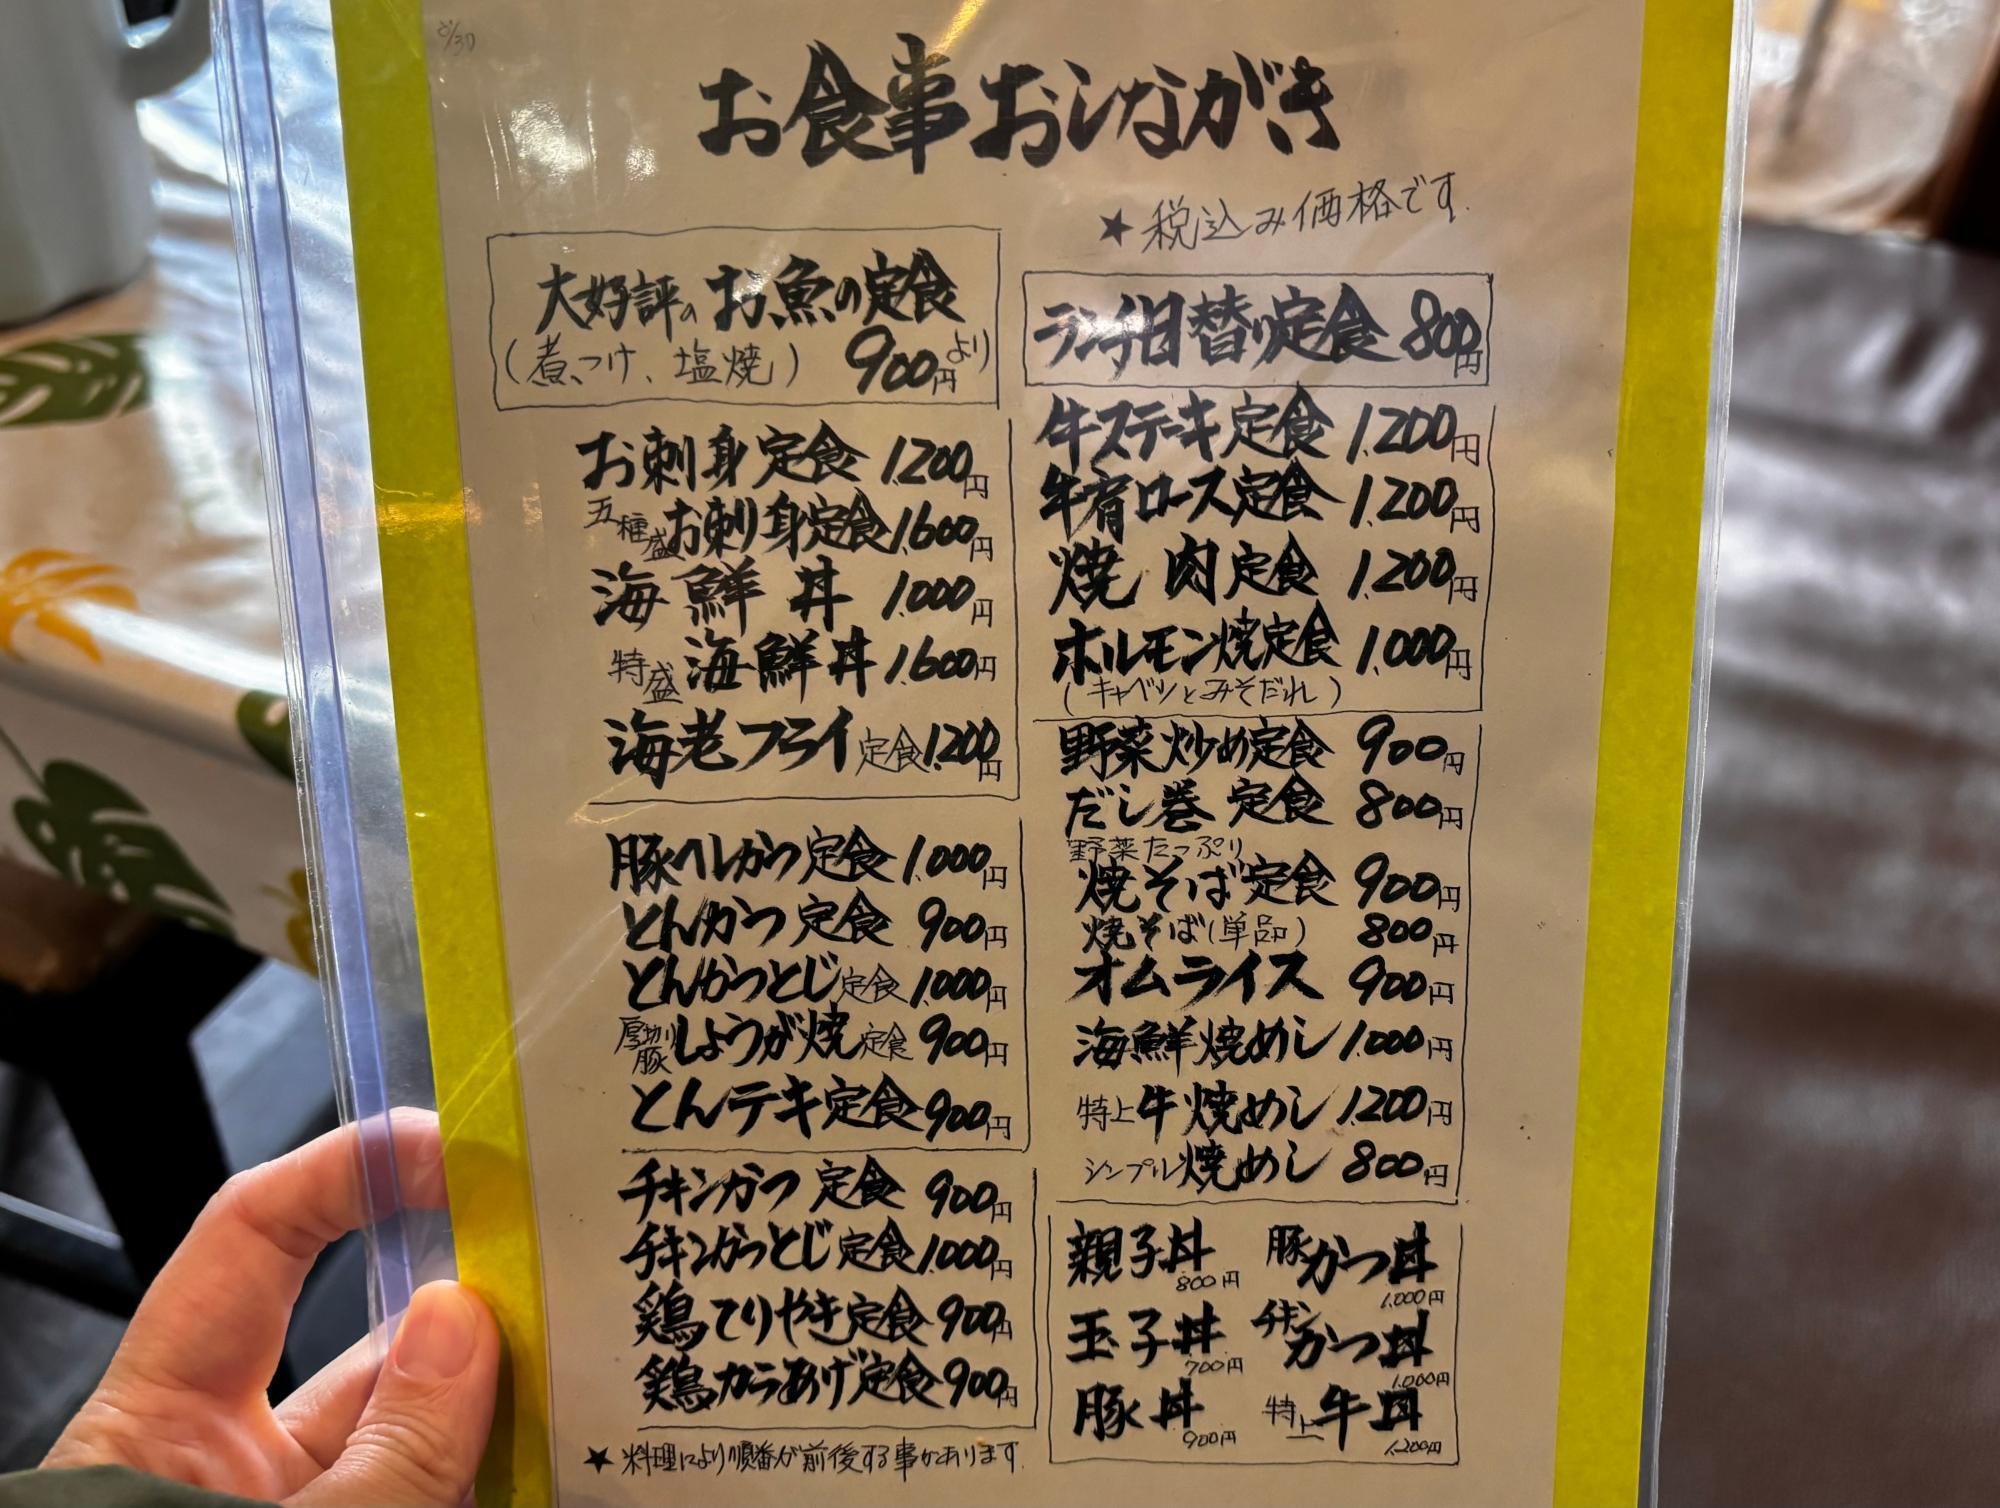 お食事おしながき
★税込み価格です.
大好評のお魚の定食
(煮つけ、塩焼) 900円より
お刺身定食 1.200円
五種盛お刺身定食 1.600円
海鮮丼 1.000円
特盛海鮮丼 1.600円
海老フライ定食 1.200円
豚ヘレかつ定食 1.000円
とんかつ定食 900円
とんかつとじ定食 1.000円
厚切り豚しょうが焼定食 900円
とんテキ定食 900円
チキンかつ定食 900円
チキンかつとじ定食 1.000円
鶏てりやき定食 900円
鶏からあげ定食 900円
★料理により順番が前後する事があります.
ランチ日替り定食 800円
牛ステーキ定食 1.200円
牛肩ロース定食 1.200円
焼肉定食 1.200円
ホルモン焼定食 1.000円
(キャベツとみそだれ)
野菜炒め定食 900円
だし巻定食 800円
野菜たっぷり
焼そば定食 900円
焼そば(単品) 800円
オムライス 900円
海鮮焼めし 1.000円
特上牛焼めし 1.200円
シンプル焼めし 800円
親子丼 800円
豚かつ丼 1.000円
玉子丼 700円
チキンかつ丼 1.000円
豚丼 900円
特上牛丼 1.200円